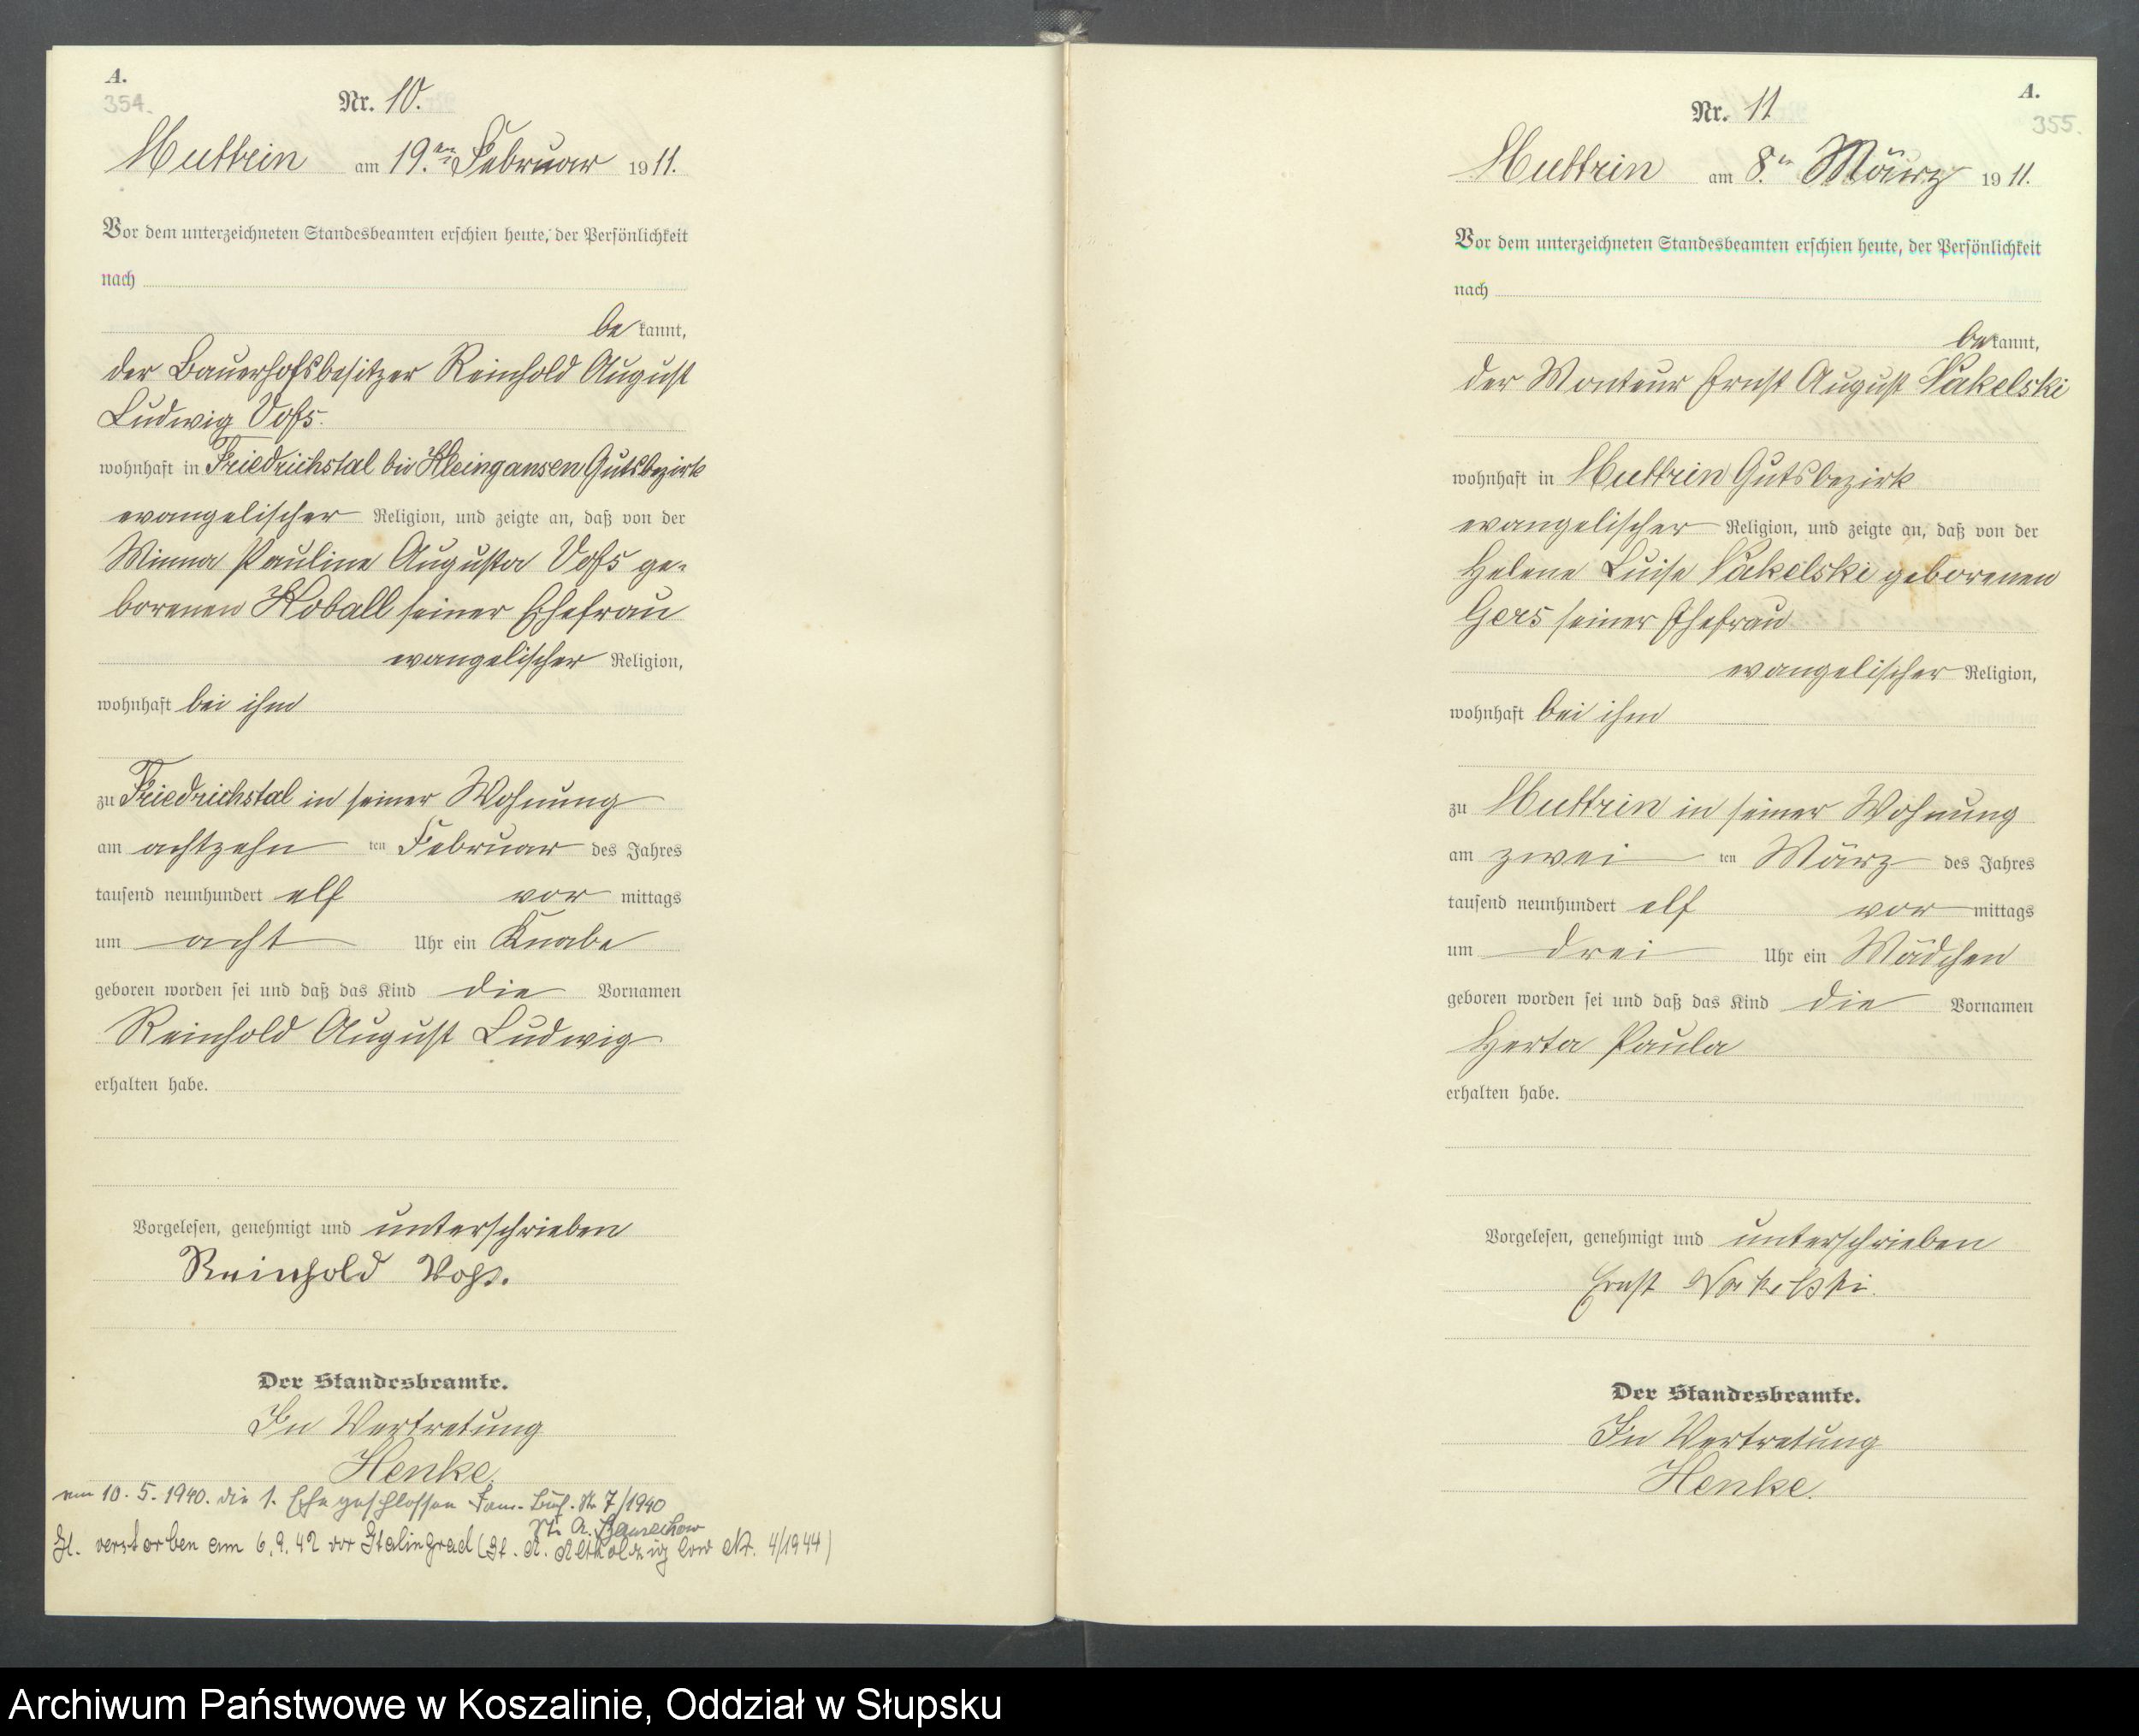 A.
354.
Nr. 10.
Muttrin am 19.ten Februar 1911.
Vor dem unterzeichneten Standesbeamten erschien heute, der Persönlichkeit
nach
be kannt,
der Bauerhofsbesitzer Reinhold August
Ludwig Voß.
wohnhaft in Friedrichstal bei Kleingansen Gutsbezirk
evangelischer Religion, und zeigte an, daß von der
Minna Pauline Augusta Voß ge-
borenen Koball seiner Ehefrau
evangelischer Religion,
wohnhaft bei ihm
zu Friedrichstal in seiner Wohnung
am achtzehn ten Februar des Jahres
tausend neunhundert elf vor mittags
um acht Uhr ein Knabe
geboren worden sei und daß das Kind die Vornamen
Reinhold August Ludwig
erhalten habe.
Vorgelesen, genehmigt und unterschrieben
Reinhold Voß.
Der Standesbeamte.
In Vertretung
Henke.
am 10.5.1940. die 1. Ehe geschlossen Fam. Buch. Nr 7/1940
St. A.
verstorben am 6.9.42 vor Stalingrad (St. A. Nr. 4/1944)
A.
355.
Nr. 11
Muttrin am 8.ten März 1911.
Vor dem unterzeichneten Standesbeamten erschien heute, der Persönlichkeit
nach
be kannt,
der Monteur Ernst August Nakelski
wohnhaft in Muttrin Gutsbezirk
evangelischer Religion, und zeigte an, daß von der
Helene Luise Nakelski geborenen
Gers seiner Ehefrau
evangelischer Religion,
wohnhaft bei ihm
zu Muttrin in seiner Wohnung
am zwei ten März des Jahres
tausend neunhundert elf vor mittags
um drei Uhr ein Mädchen
geboren worden sei und daß das Kind die Vornamen
Herta Paula
erhalten habe.
Vorgelesen, genehmigt und unterschrieben
Ernst Nakelski.
Der Standesbeamte.
In Vertretung
Henke.
Archiwum Państwowe w Koszalinie, Oddział w Słupsku